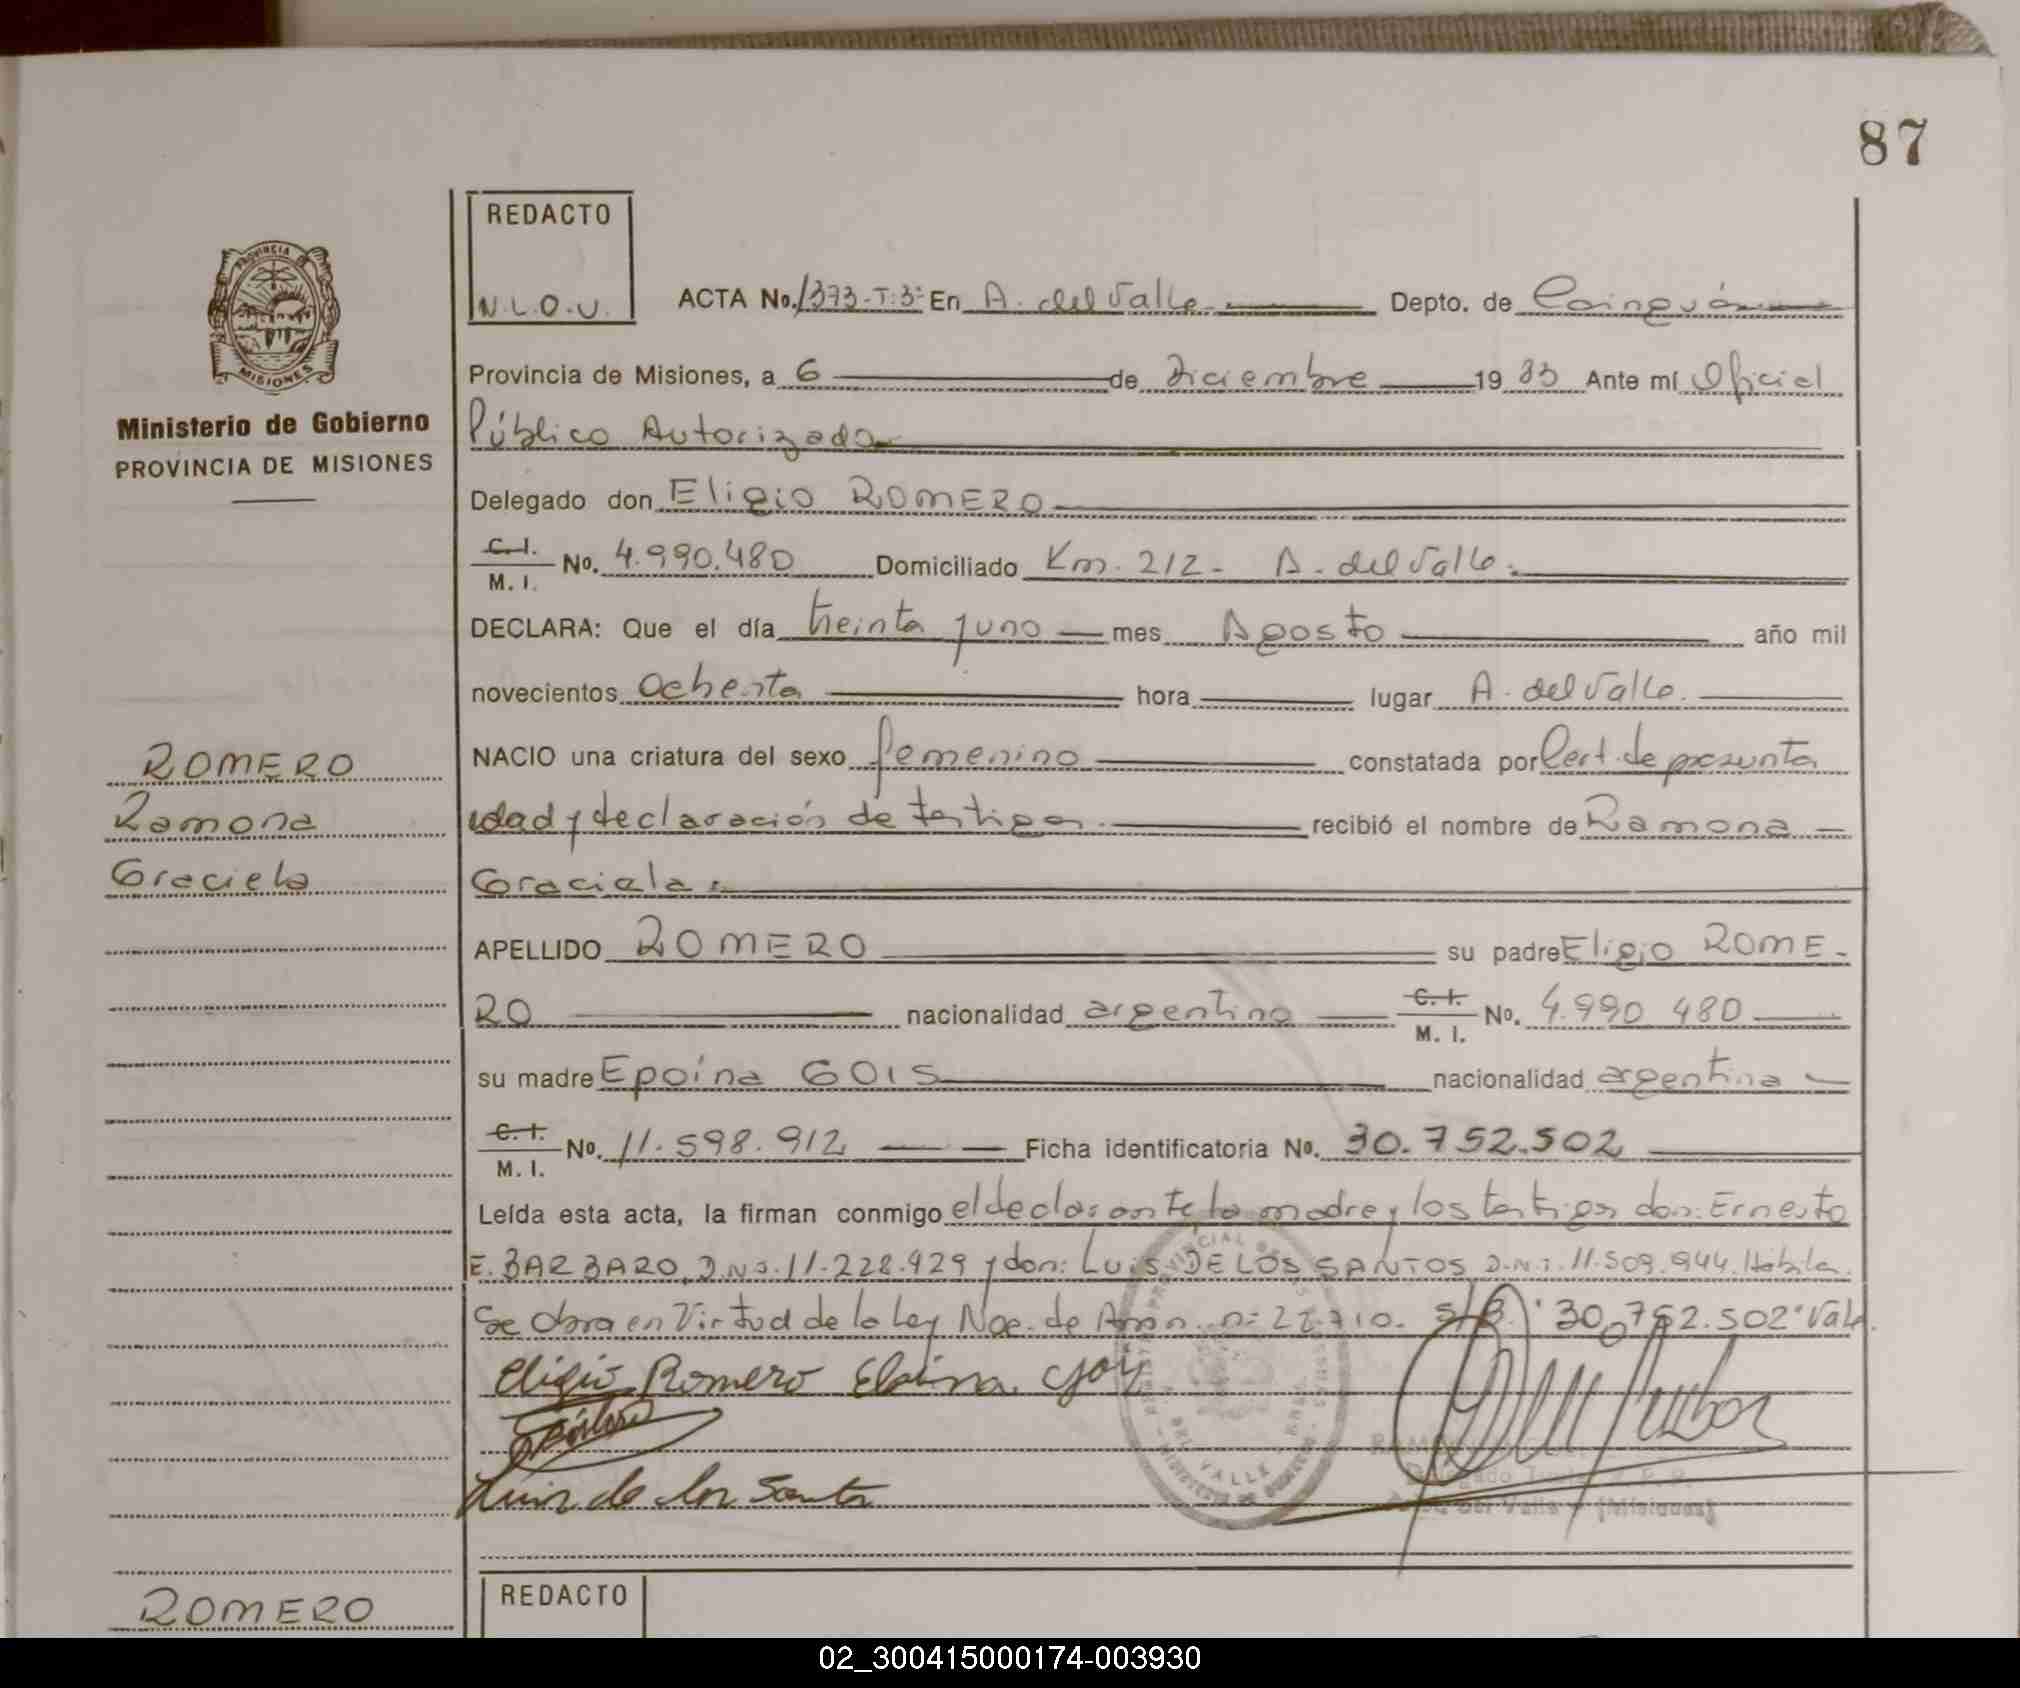 87
REDACTO
N.L.O.U.
PROVINCIA
MISIONES
Ministerio de Gobierno
PROVINCIA DE MISIONES
ACTA No. 1373-T:3º En A. del Valle Depto. de Cainguás
Provincia de Misiones, a 6 de Diciembre 1983 Ante mí Oficial
Público Autorizado
Delegado don Eligio ROMERO
C. I. / M. I. No. 4.990.480 Domiciliado Km. 212- A. del Valle.
DECLARA: Que el día treinta y uno mes Agosto año mil
novecientos ochenta hora lugar A. del Valle.
NACIO una criatura del sexo femenino constatada por Cert. de presunta
edad y declaración de testigos recibió el nombre de Ramona
Graciela.
APELLIDO ROMERO su padre Eligio ROME-
RO nacionalidad argentino C. I. / M. I. No. 4.990 480
su madre Epoína GOIS nacionalidad argentina
C. I. / M. I. No. 11.598.912 Ficha identificatoria No. 30.752.502
Leída esta acta, la firman conmigo el declarante, la madre y los testigos don: Ernesto
E. BARBARO, D.N.I. 11.228.929 y don: Luis DE LOS SANTOS D.N.I. 11.509.944. Habila.
Se obra en Virtud de la Ley Nac. de n: 22.710. s/B. "30.752.502" Vale.
Eligio Romero
Luis de los Santos
ROMERO
Ramona
Graciela
ROMERO
REDACTO
02_300415000174-003930